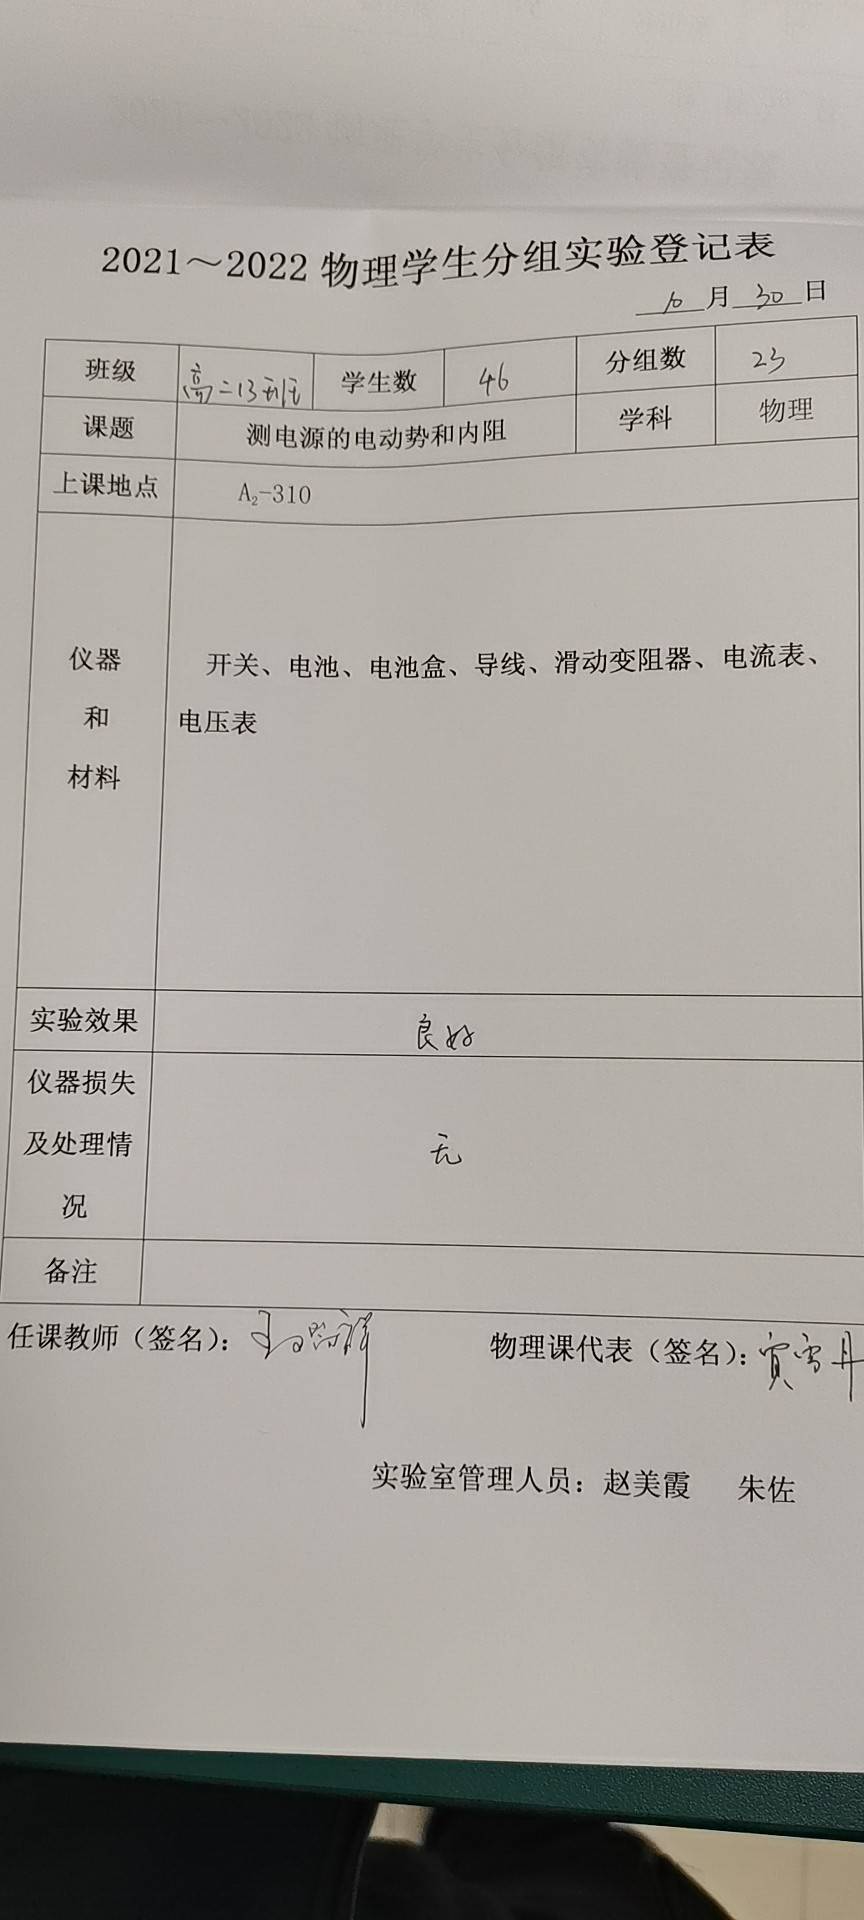 2021～2022 物理学生分组实验登记表
10月30日
班级 高二13班 学生数 46 分组数 23
课题 测电源的电动势和内阻 学科 物理
上课地点 A₂-310
仪器
和
材料
开关、电池、电池盒、导线、滑动变阻器、电流表、
电压表
实验效果 良好
仪器损失
及处理情
况
无
备注
任课教师（签名）： 物理课代表（签名）：贾雪丹
实验室管理人员：赵美霞 朱佐